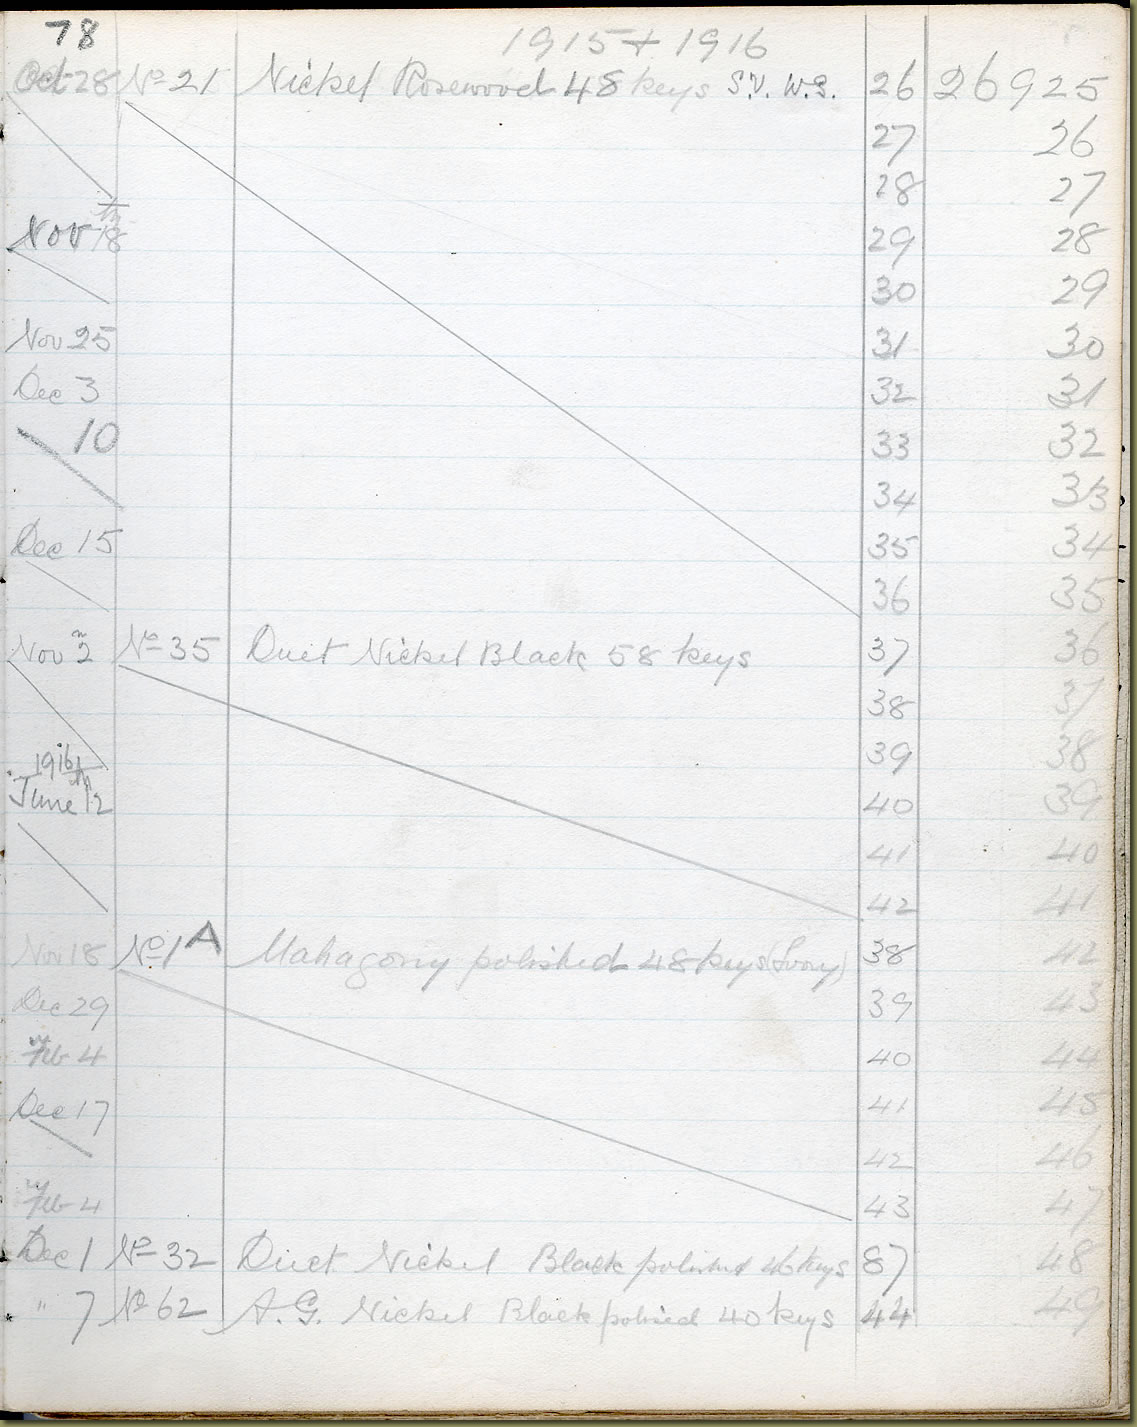 78
1915 + 1916
Oct 28 No 21 Nickel Rosewood 48 keys S.V. W.S. 26 26925
27 26
28 27
Nov 18th 29 28
30 29
Nov 25 31 30
Dec 3 32 31
10 33 32
34 33
Dec 15 35 34
36 35
Nov 2n No 35 Duet Nickel Black 58 keys 37 36
38 37
1916 39 38
June 12th 40 39
41 40
42 41
Nov 18 No 1A Mahagony polished 48 keys (Ivory) 38 42
Dec 29 39 43
Feb 4 40 44
Dec 17 41 45
42 46
Feb 4 43 47
Dec 1 No 32 Duet Nickel Black polished 46 keys 87 48
" 7 No 62 A.G. Nickel Black polised 40 keys 44 49